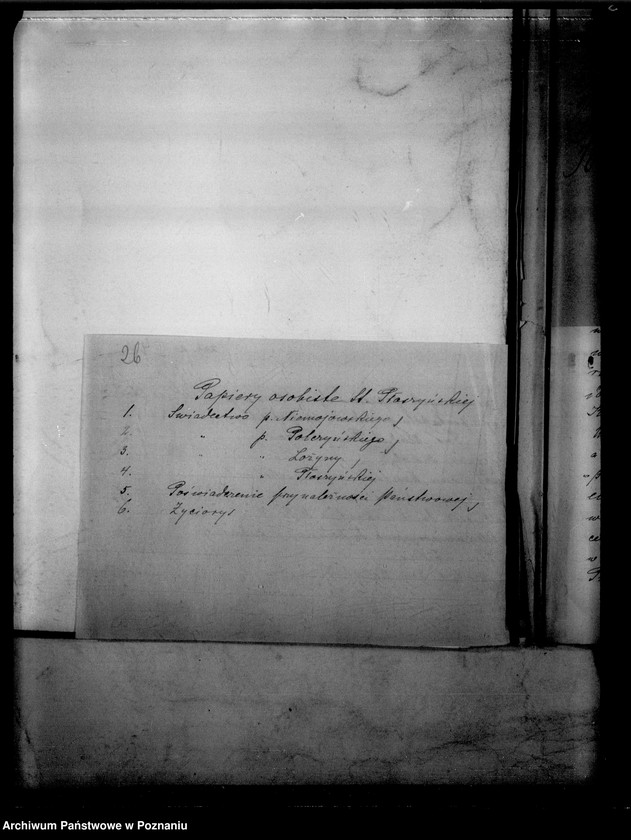 26
Papiery osobiste St. Ptaszyńskiej
1. Świadectwo p. Niemojowskiego,
2. " p. Połczyńskiego,
3. " " Łożyny,
4. " Ptaszyńskiej
5. Poświadczenie przynależności państwowej,
6. Życiorys
Archiwum Państwowe w Poznaniu